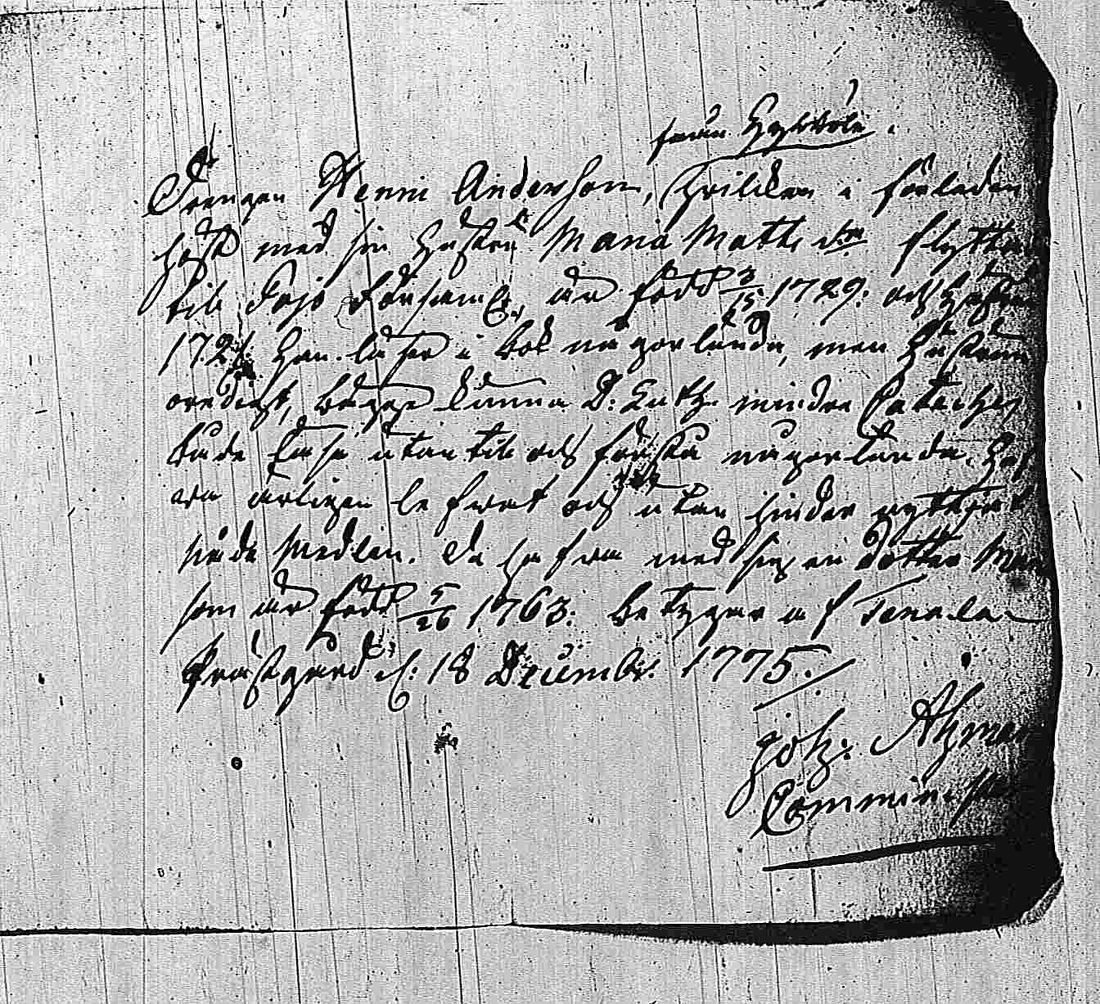 från
Drengen Henric Andersson, hvilken i förleden
höst med sin hustru Maria Matts dr flytta
til Pojo Församl. är född 3/15 1729: och hustrun
172 Han läser i bok någorlunda, men hustrun
oredigt, begge kunna D: Luth. mindre Cateches
både läsa utantil och förstå någorlunda.
ärligen lefwat och utan hinder nyttjat
nåde medlen. De hafwa med sig en dotter Mar
som är född 5/26 1763. Betygar af Tenala
Prästgård d: 18 Decemb: 1775.
Joh: Ahman
Comminister